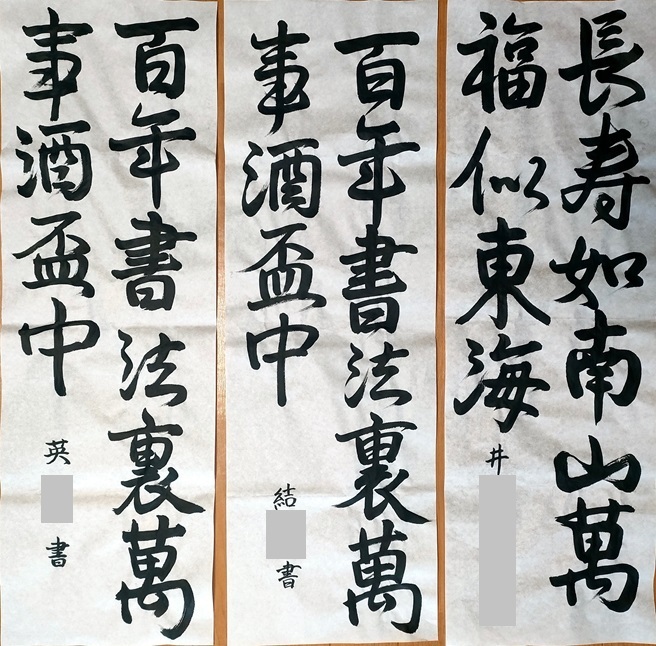 長寿如南山萬
福似東海
井
百年書法裏萬
事酒盃中
結
書
百年書法裏萬
事酒盃中
英
書